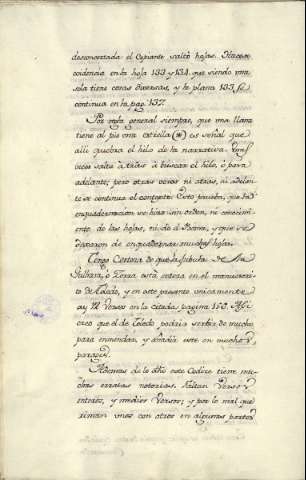 desconcertada el Copiante saltó hojas. Itacon
cadencia en la hoja 133 y 134. que siendo una
sola tiene caras diversas, y la plana 133, se
continua en la pag. 137.
Por regla general siempre, que una llana
tiene al pie una estrella (*) es señal que
alli quiebra el hilo de la narrativa.
veces salta atras à buscar el hilo, ò para
adelante; pero otras veces ni atras, ni adelan
te se continua el contexto. Esto prueba, que la
enquadernacion se hizo sin orden, ni conocimiento
de las hojas, ni de el Poema, y que se
dexaron de enquadernar muchas hojas.
Tengo Certeza de que la fabula de
ò Zorra està entera en el manuscrito
de Toledo, y en este presente unicamente
ay 12 Versos en la citada pagina 150. Assi
creo que el de Toledo podria servir de mucho
para enmendar, y añadir este en muchos
parages.
Ademas de lo dho este Codice tiene mu-
chas erratas notorias. Faltan Versos
enteros, y medios Versos; y por lo mal que
riman unos con otros en algunas partes